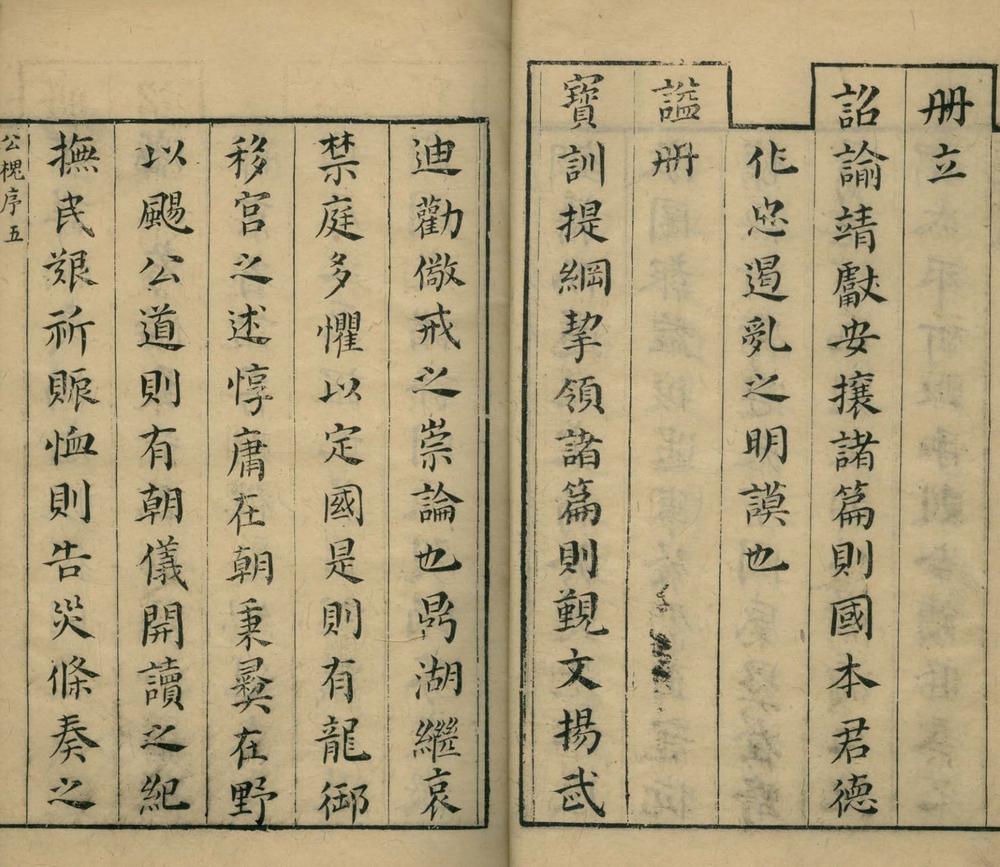 冊立
詔諭靖獻安攘諸篇則國本君德
作忠遏亂之明謨也
諡冊
寶訓提綱挈領諸篇則覲文揚武
迪勸儆戒之崇論也鼎湖繼哀
禁庭多懼以定國是則有龍御
移宮之述惇庸在朝秉彞在野
以颺公道則有朝儀開讀之紀
撫民艱祈賑恤則告災條奏之
公槐序五